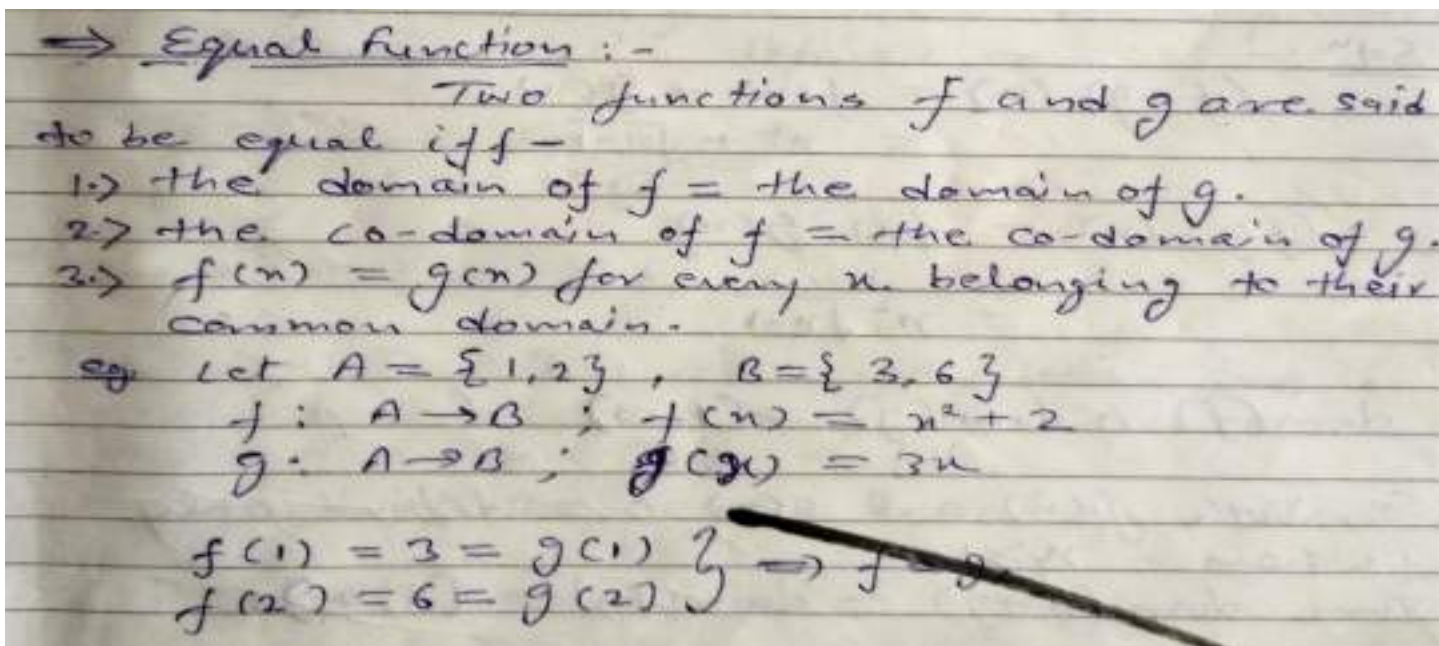 ⇒ Equal function :-
Two functions f and g are said
to be equal iff -
1.> the domain of f = the domain of g.
2.> the co-domain of f = the co-domain of g.
3.> f(x) = g(x) for every x belonging to their
common domain.
eg. Let A = {1,2} , B = {3,6}
f : A → B ; f(x) = x² + 2
g : A → B ; g(x) = 3x
f(1) = 3 = g(1) } ⇒ f = g
f(2) = 6 = g(2)